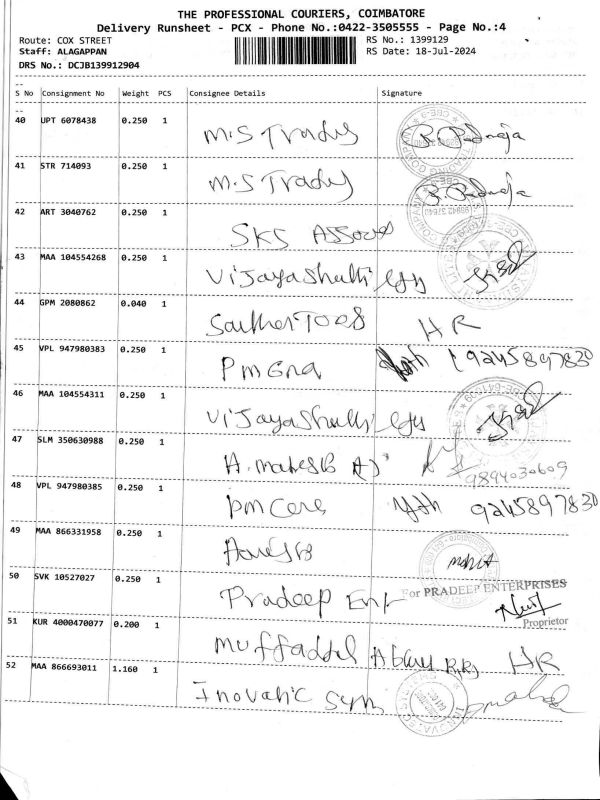 THE PROFESSIONAL COURIERS, COIMBATORE
Delivery Runsheet - PCX - Phone No.:0422-3505555 - Page No.:4
Route: COX STREET
RS No.: 1399129
Staff: ALAGAPPAN
RS Date: 18-Jul-2024
DRS No.: DCJB139912904
--
S No Consignment No Weight PCS Consignee Details Signature
--
40 UPT 6078438 0.250 1 M.S Tradys
41 STR 714093 0.250 1 M.S Tradys
42 ART 3040762 0.250 1 SKS
43 MAA 104554268 0.250 1 Vijayashakti
44 GPM 2080862 0.040 1 HR
45 VPL 947980383 0.250 1 9245897830
46 MAA 104554311 0.250 1 Vijayashakti
47 SLM 350630988 0.250 1 A. mahesh
9894030609
48 VPL 947980385 0.250 1 pm care 9245897830
49 MAA 866331958 0.250 1
50 SVK 10527027 0.250 1 Pradeep Ent
For PRADEEP ENTERPRISES
Proprietor
51 KUR 4000470077 0.200 1 Muffaddal HR
52 MAA 866693011 1.160 1 Inovatic sym